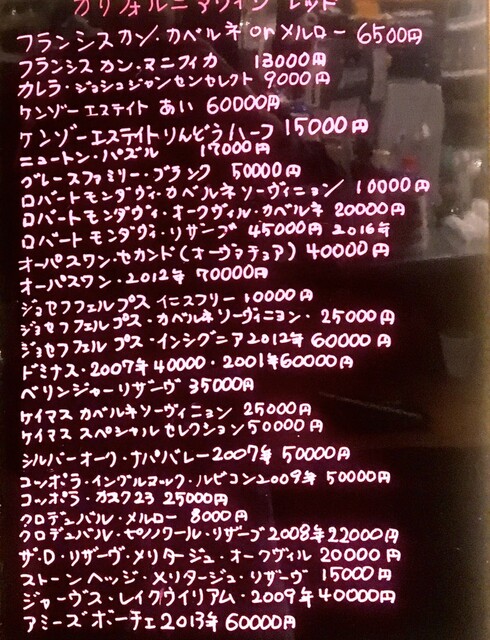 カリフォルニアワイン レッド
フランシスカン・カベルネ or メルロー 6500円
フランシスカン・マニフィカ 13000円
カレラ・ジョシュジャンセンセレクト 9000円
ケンゾーエステイト あい 60000円
ケンゾーエステイトりんどうハーフ 15000円
ニュートン・パズル 17000円
グレースファミリー・ブランク 50000円
ロバートモンダヴィ・カベルネソーヴィニョン 10000円
ロバートモンダヴィ・オークヴィル・カベルネ 20000円
ロバートモンダヴィ・リザーブ 45000円 2016年
オーパスワン・セカンド(オーヴァチュア) 40000円
オーパスワン・2012年 70000円
ジョセフフェルプス イニスフリー 10000円
ジョセフフェルプス・カベルネソーヴィニヨン・ 25000円
ジョセフフェルプス・インシグニア2012年 60000円
ドミナス・2007年40000・2001年60000円
ベリンジャーリザーヴ 35000円
ケイマスカベルネソーヴィニョン 25000円
ケイマススペシャルセレクション50000円
シルバーオーク・ナパバレー2007年 50000円
コッポラ・イングルヌック・ルビコン2009年 50000円
コッポラ・カスク23 25000円
クロデュバル・メルロー 8000円
クロデュバル・ピノノワール・リザーブ2008年22000円
ザ・D・リザーヴ・メリタージュ・オークヴィル 20000円
ストーンヘッジ・メリタージュ・リザーヴ 15000円
ジャーヴス・レイクウイリアム・2009年40000円
アミーズボーチェ2013年60000円